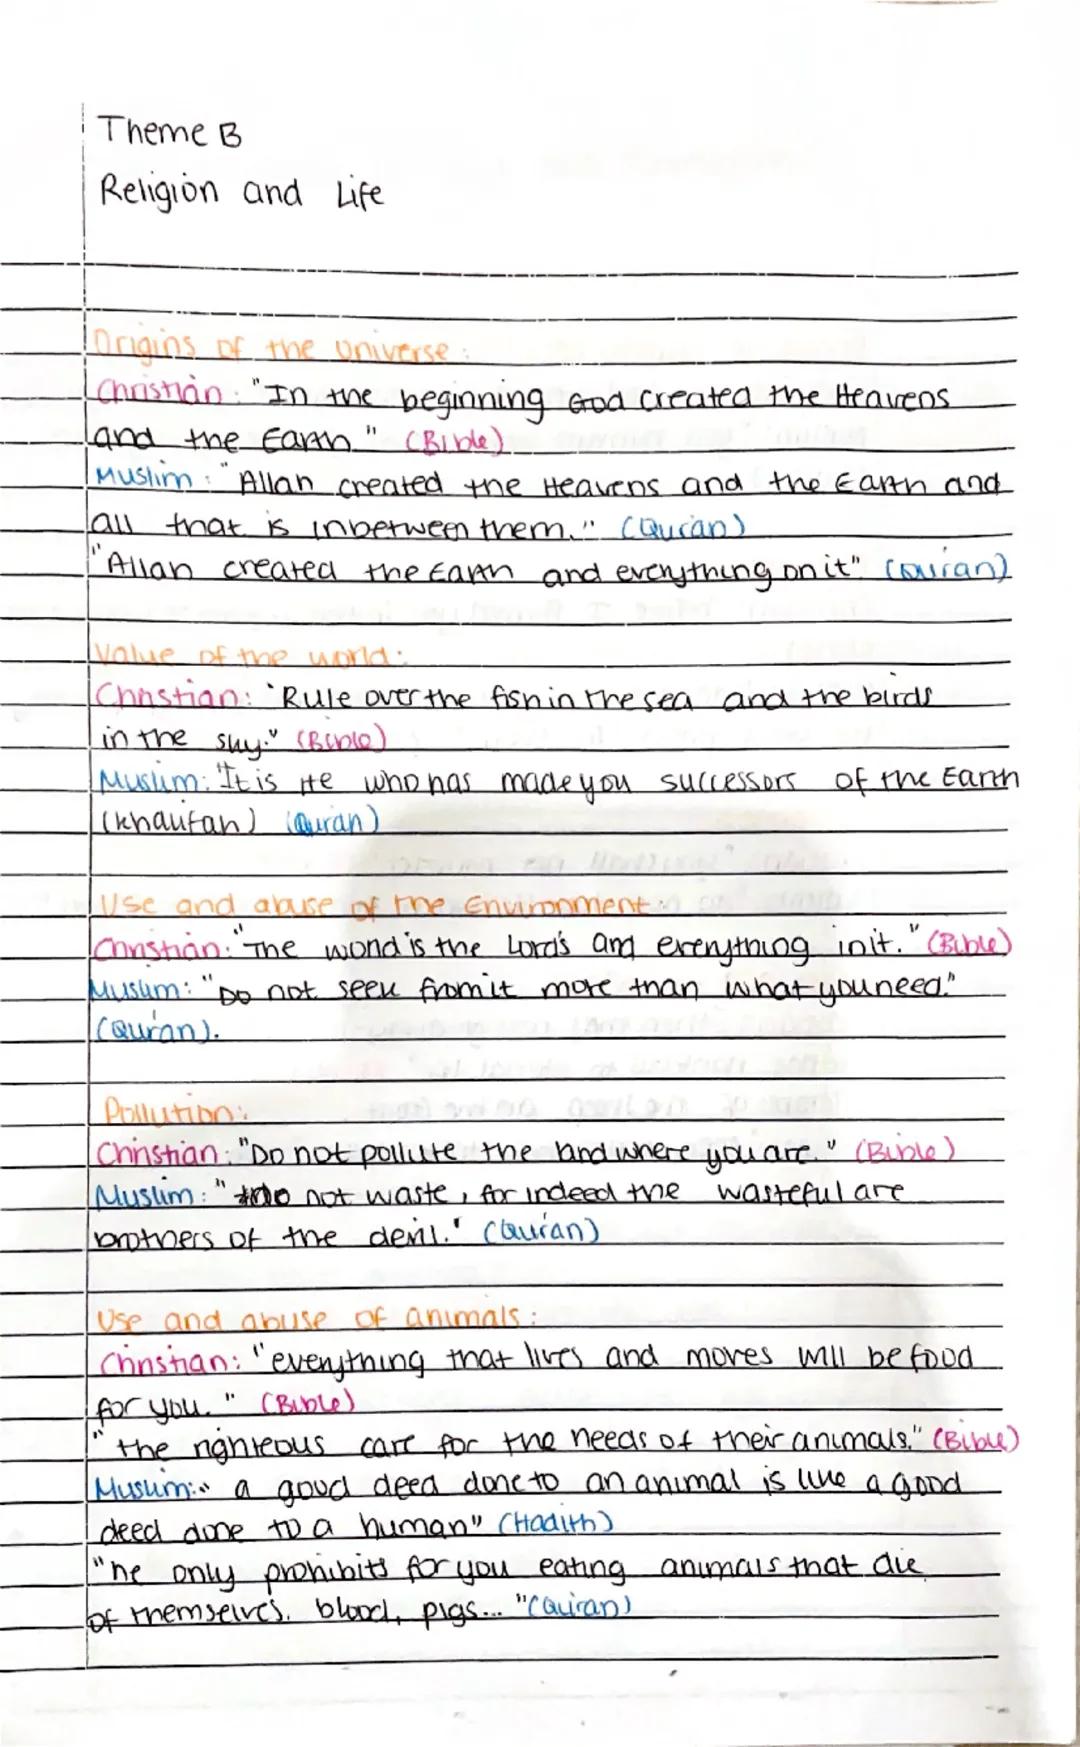 Theme B
Religion and Life
Origins of the universe:
Christian: "In the beginning God created the Heavens
and the Earth." (Bible)
Muslim: "Allah created the Heavens and the Earth and
all that is inbetween them." (Quran)
"Allah created the Earth and everything on it" (Quran)
Value of the world:
Christian: "Rule over the fish in the sea and the birds
in the sky." (Bible)
Muslim: "It is He who has made you successors of the Earth
(khalifah) (Quran)
Use and abuse of the Environment:
Christian: "The world is the Lord's and everything in it." (Bible)
Muslim: "Do not seek from it more than what you need."
(Quran).
Pollution:
Christian: "Do not pollute the land where you are." (Bible)
Muslim: "do not waste, for indeed the wasteful are
brothers of the devil." (Quran)
Use and abuse of animals:
Christian: "everything that lives and moves will be food
for you." (Bible)
"the righteous care for the needs of their animals." (Bible)
Muslim: "a good deed done to an animal is like a good
deed done to a human" (Hadith)
"he only prohibits for you eating animals that die
of themselves, blood, pigs..." (Quran)